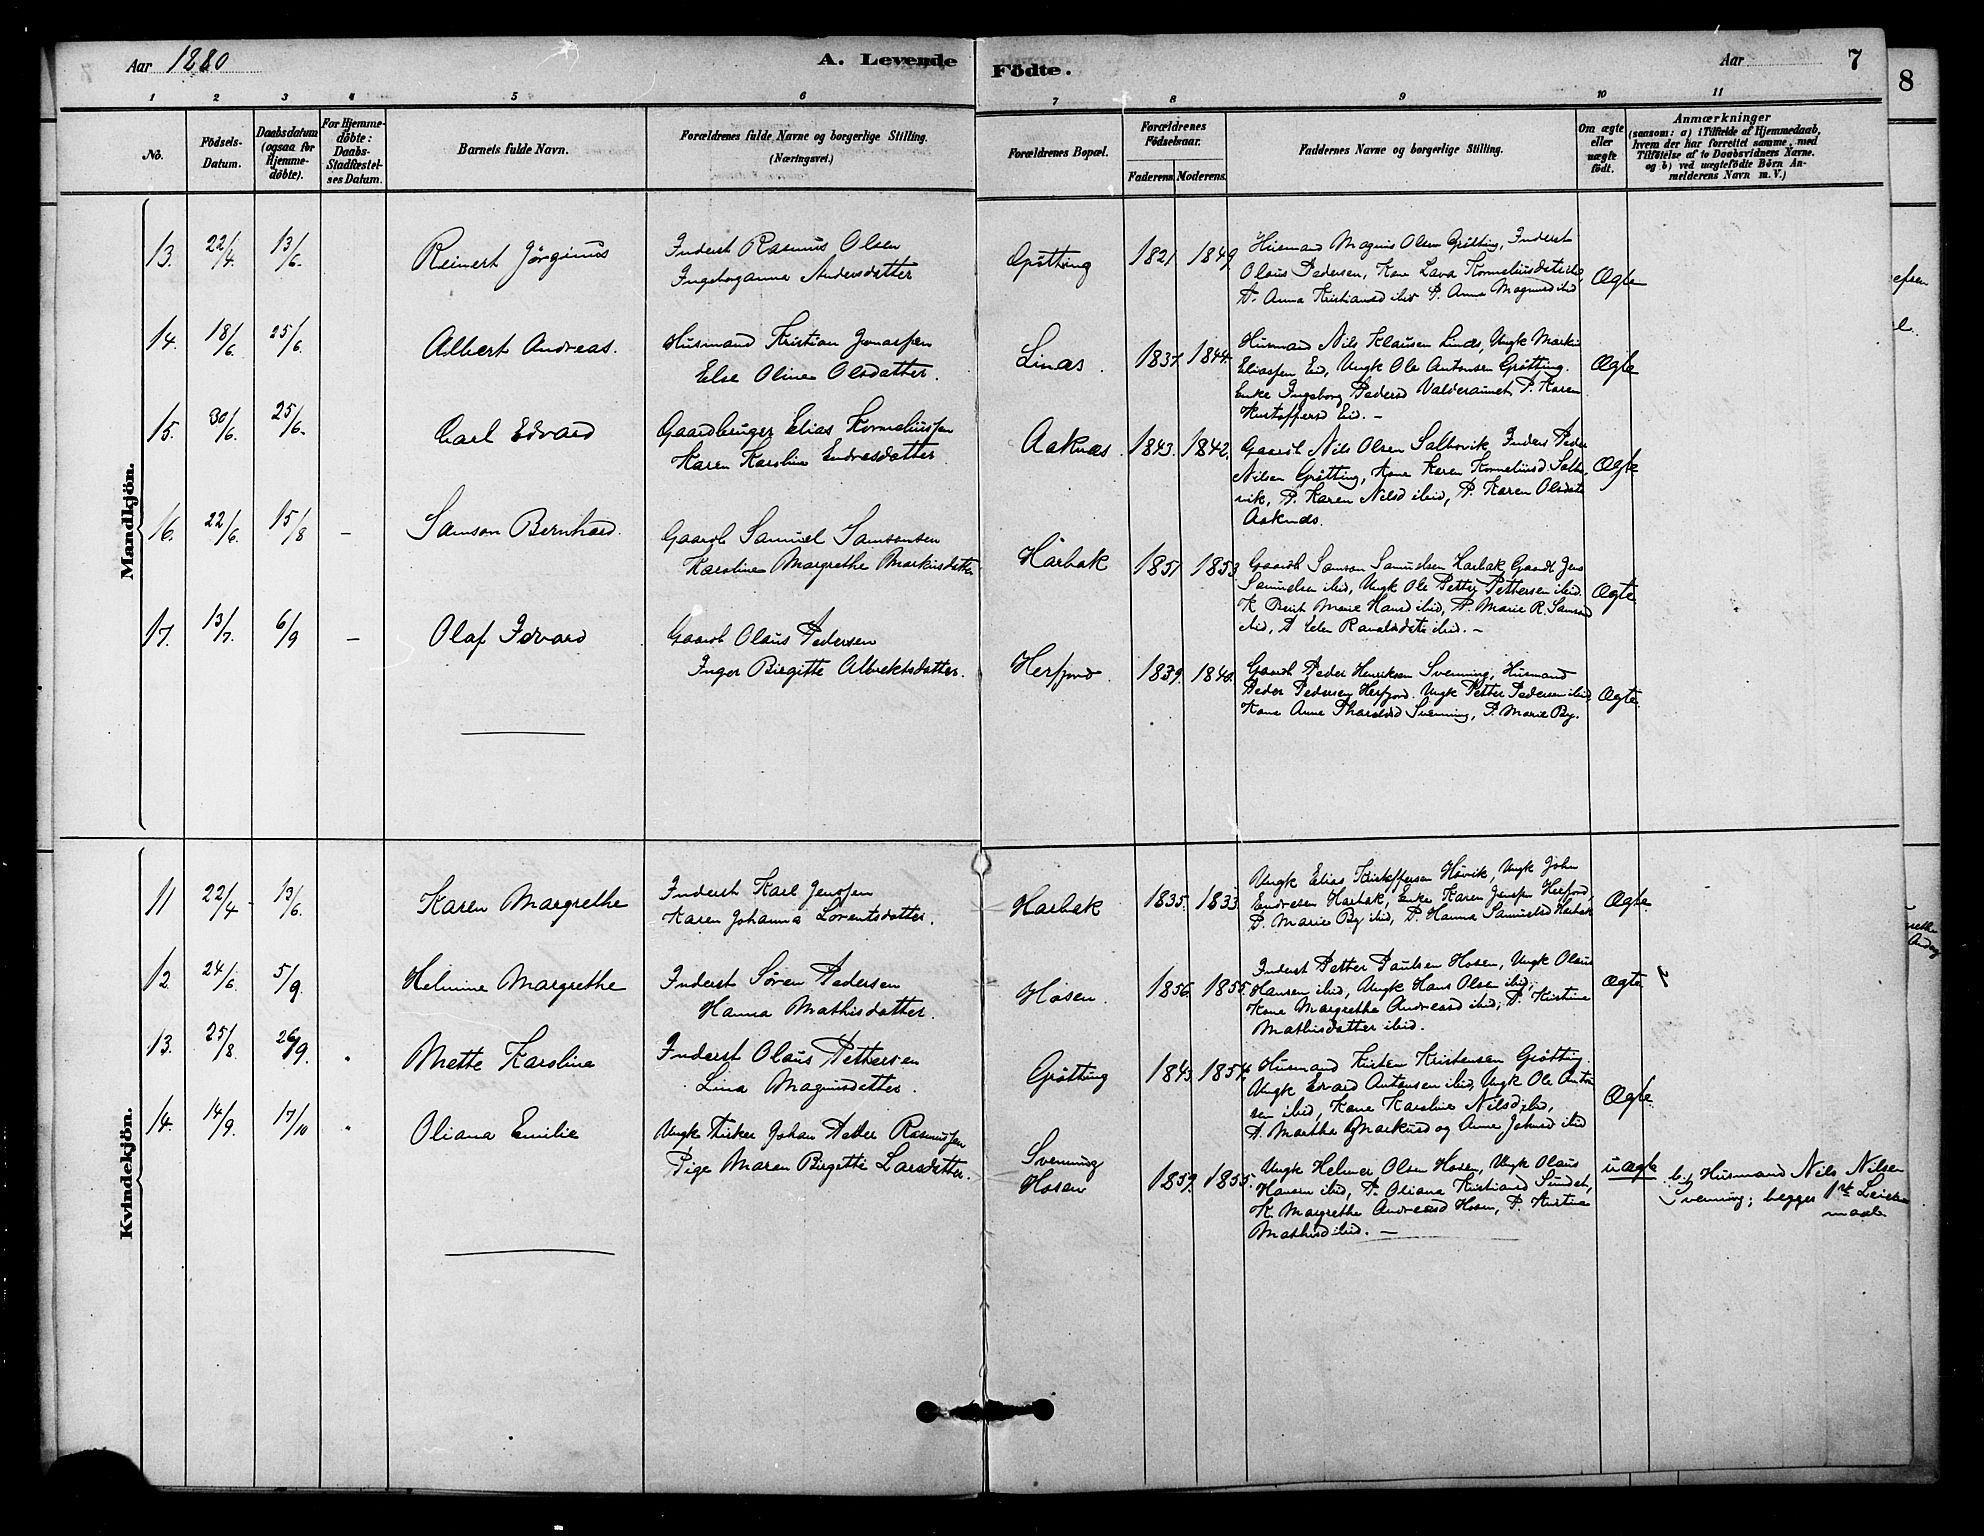 Aar 1880
A. Levende Födte.
Aar
7
8
1 2 3 4 5 6 7 8 9 10 11
No.
Födsels-
Datum.
Daabsdatum
(ogsaa for
Hjemme-
döbte).
For Hjemme-
döbte:
Daabs-
Stadfæstel-
ses Datum.
Barnets fulde Navn.
Forældrenes fulde Navne og borgerlige Stilling.
(Næringsvei.)
Forældrenes Bopæl.
Forældrenes
Födselsaar.
Faderens. Moderens.
Faddernes Navne og borgerlige Stilling.
Om ægte
eller
uægte
født.
Anmærkninger
(saasom: a) i Tilfælde af Hjemmedaab,
hvem der har forrettet samme, med
Tilføielse af to Daabsvidners Navne.
og b) ved uægtefödte Börn An-
melderens Navn m. V.)
Mandkjön.
13. 22/4. 13/6. Reinert Jörginus
Inderst Rasmus Olsen
Ingeboranna Andersdatter
Grötting 1821 1849
Husmand Magnus Olsen Grötting, Inderst
Olaus Pedersen, Kone Lava Korneliusdatter ibid,
P. Anna Kristiansd ibid P. Anne Magnusd ibid
Ægte
14. 18/6. 25/6. Albert Andreas.
Husmand Kristian Jonassen
Else Oline Olsdatter.
Linas. 1837 1844.
Husmand Nils Klausen Linds, Ungk Markus
Eliassen Eid, Ungk Ole Antonsen Grötting.
Enke Ingeborg Pedersd Valderaunet, P. Karen
Kristoffersd Eid. –
Ægte
15. 30/6. 25/6. Carl Edvard
Gaardbruger Elias Korneliussen
Karen Karoline Endresdatter
Aaknæs. 1843. 1842.
Gaardb Nils Olsen Salbovik Inderst Peder
Nilsen Grötting, Kone Karen Korneliusd Salbo-
vik, P. Karen Nilsd ibid, P. Karen Olsdatt
Aaknæs.
Ægte
16. 22/6. 15/8 – Samson Bernhard.
Gaardb Samuel Samsonsen
Karoline Margrethe Markusdatter
Harbak 1851 1853
Gaardb Samson Samuelsen Harbak, Gaardb Jens
Samuelsen ibid, Ungk Ole Petter Pettersen ibid.
K. Berit Marie Hansd ibid, P. Marie R. Samsd
ibid, P Elen ibid. –
Ægte
17. 13/7. 6/9 – Olaf Edvard
Gaardb Olaus Pedersen
Inger Birgitte Albrektsdatter.
Herfjord. 1839. 1840.
Gaardb Peder Henriksen Svenning, Husmand
Peder Pedersen Herfjord. Ungk Petter Pedersen ibid,
Kone Anne Svenning, P. Marie By.
Ægte
Kvindekjön.
11 22/4 – 13/6. Karen Margrethe
Inderst Karl Jenssen
Karen Johanna Lorentsdatter.
Harbak 1835. 1833
Ungk Elias Kristoffersen Hövik, Ungk John
Endresen Harbak, Enke Karen Jensen Herfjord,
P. Marie By ibid, P. Hanna Samuelsd Harbak
Ægte.
12. 24/6. 5/9. Helmine Margrethe
Inderst Sören Pedersen
Hanna Mathisdatter.
Hosen. 1856. 1855.
Inderst Petter Paulsen Hosen, Ungk Olaus
Hansen ibid, Ungk Hans Olsen ibid;
Kone Margrethe Andreasd ibid; P. Kristine
Mathisdatter ibid.
Ægte
13. 25/8. 26/9. " Mette Karoline
Inderst Olaus Pettersen
Lina Magnusdatter.
Grötting 1843. 1854.
Husmand Kristen Kristensen Grötting.
Ungk Edvard Antonsen ibid, Ungk Ole Anton
sen ibid, Kone Karoline Nilsd ibid,
P. Martha Markusd og Anne Johnsd ibid
Ægte.
14. 14/9. 17/10 " Oliana Emilie
Ungk Fisker Johan Petter Rasmussen
Pige Maren Birgitte Larsdatter.
Svenning
Hosen 1859. 1855.
Ungk Helmer Olsen Hosen, Ungk Olaus
Hansen ibid, P. Oliana Kristiansd Sundet,
K. Margrethe Andreasd Hosen, P. Kristine
Mathisd ibid. –
uægte
Husmand Nils Nilsen
Svenning; begges 1ste Leiers-
maal.